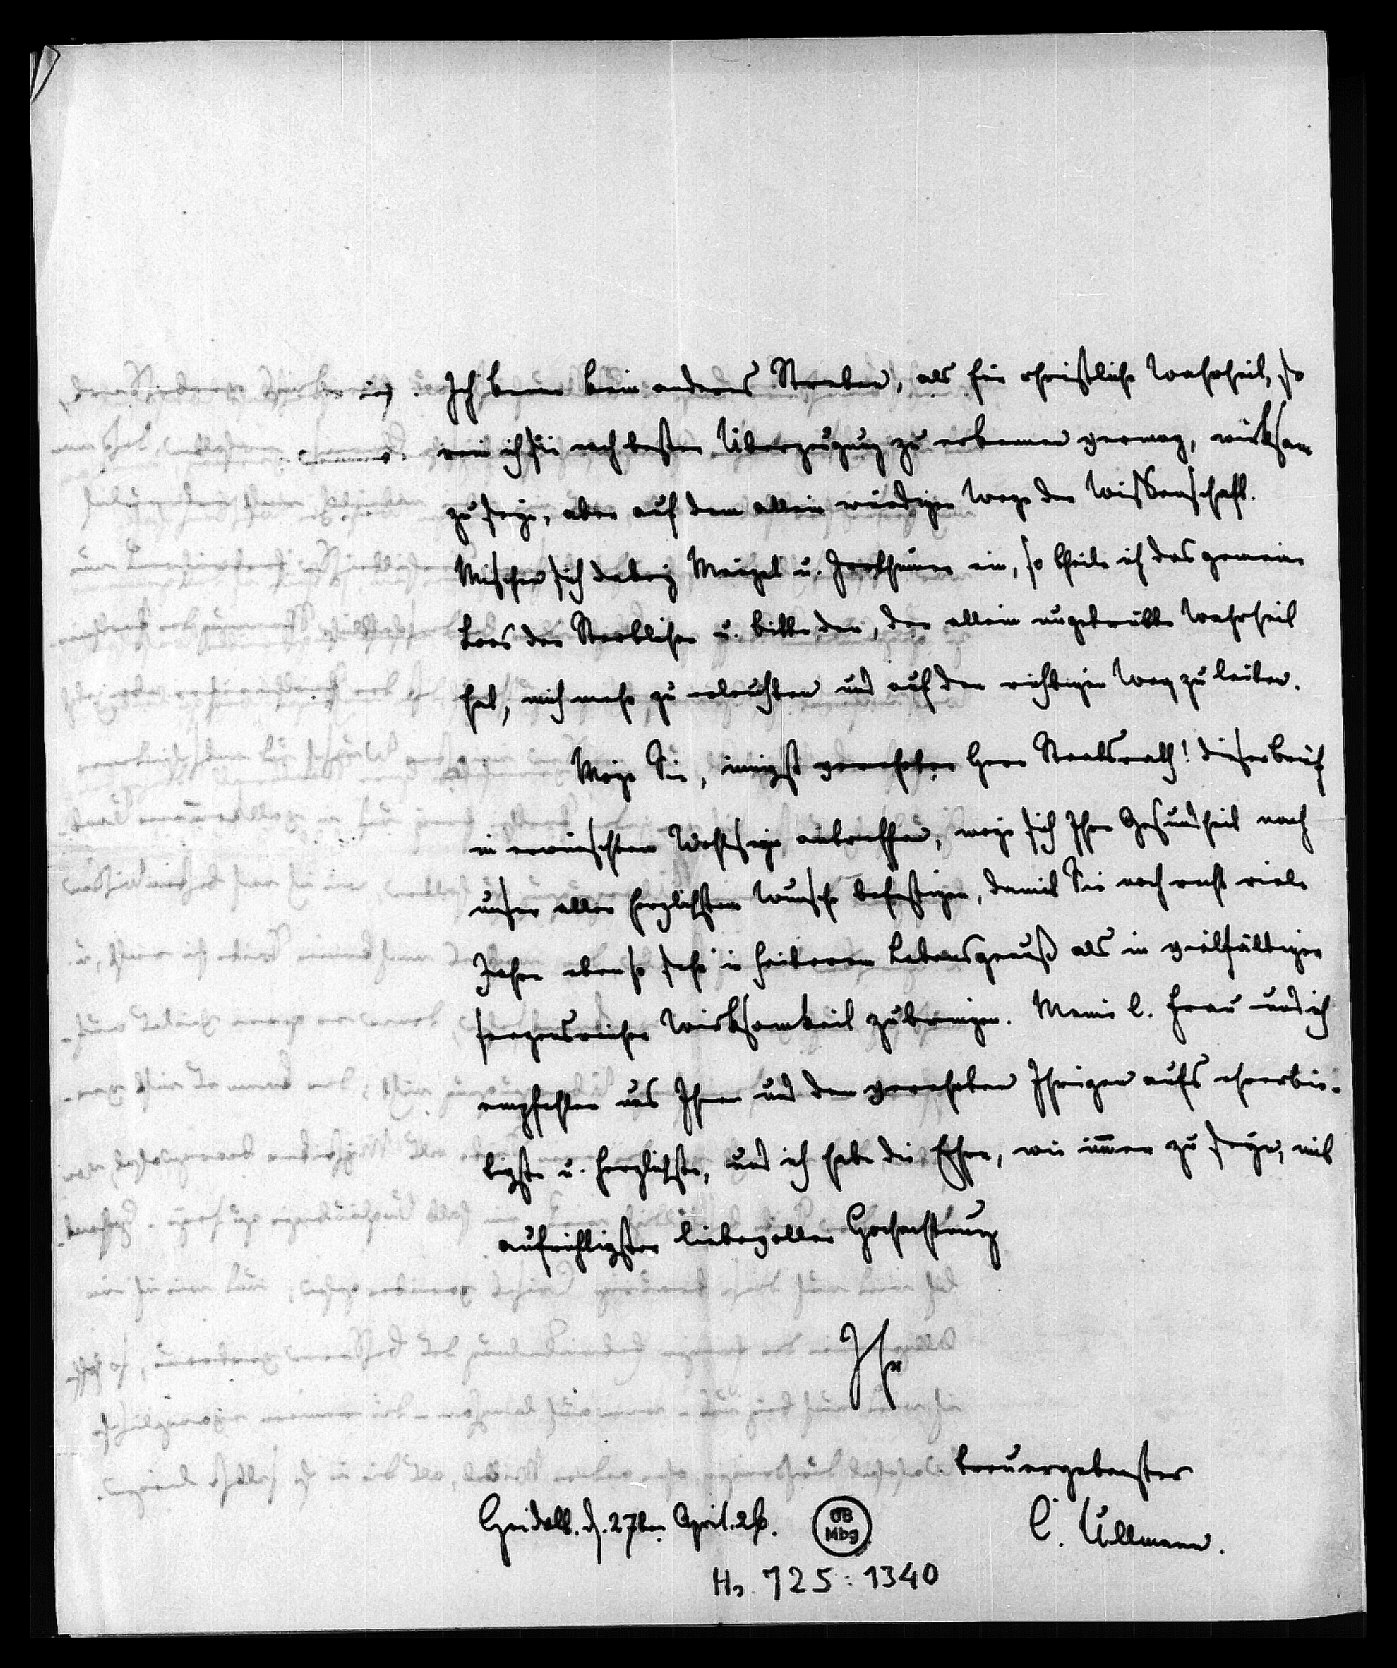 Ich kenne kein anderes Streben, als für christliche Wahrheit, so
wie ich sie nach bester Überzeugug zu erkennen vermag, wirksam
zu seyn, aber auf dem allein würdigen Wege der Wissenschaft.
Mischen sich dabey Mängel u. Irrthümer ein, so theile ich das gemeine
Loos der Sterblichen u. bitte den, der allein ungetrübte Wahrheit
hat, mich mehr zu erleuchten und auf den richtigen Weg zu leiten.
Möge Sie, innigst verehrter Herr Staatsrath! dieser Brief
in erwünschtem Wohlseyn antreffen, möge sich Ihre Gesundheit nach
unser aller herzlichstem Wunsche befestigen, damit Sie noch recht viele
Jahre eben so sehr in heiterem Lebensgenuß als in vielfältiger
segensreicher Wirksamkeit zubringen. Meine l. Frau und ich
empfehlen uns Ihnen und den verehrten Ihrigen aufs ehrerbie-
tigste u. herzlichste, und ich habe die Ehre, wie immer zu seyn, mit
aufrichtigster liebevoller Hochachtung
Ihr
treuergebenster
Heidelb. d. 27ten April. 26.
C. Ullmann.
UB
Mbg
Hs. 725:1340